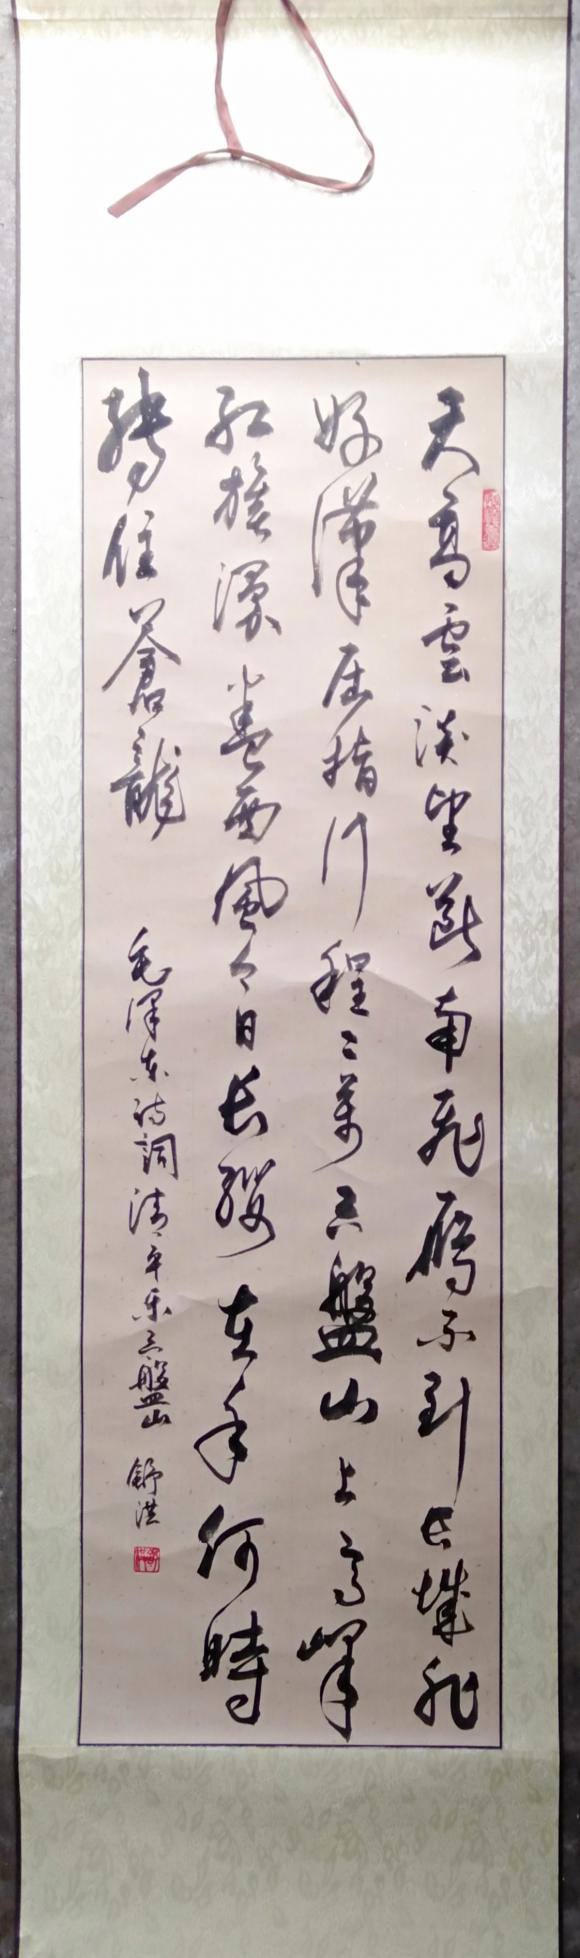 天高雲淡望斷南飛雁不到長城非
好漢屈指行程二萬六盤山上高峰
紅旗漫卷西風今日長纓在手何時
縛住蒼龍
毛澤東詩詞清平樂六盤山 舒洪